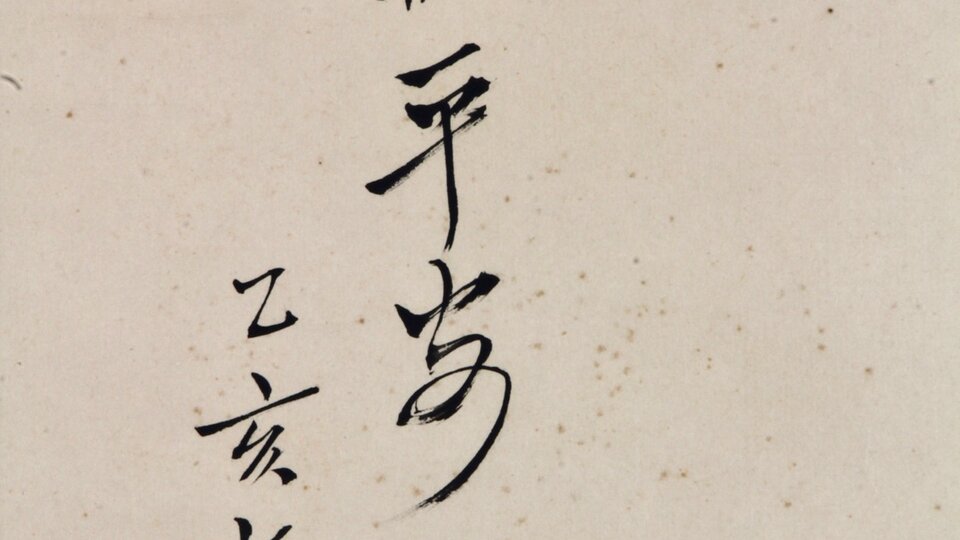 平安
乙亥